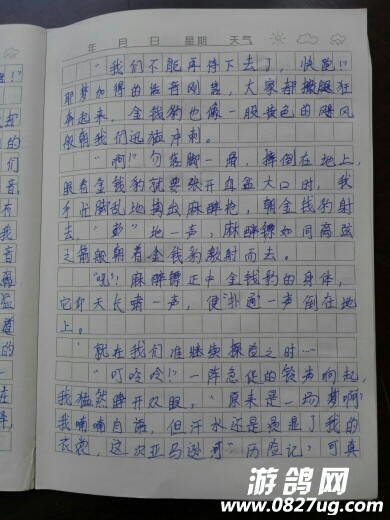 年 月 日 星期 天气
“我们不能再待下去了，快跑！”
耶梦加得的话音刚落，大家都撒腿狂
奔起来，金钱豹也像一股黄色的飓风
般朝我们迅猛冲刺。
“啊！”勾 脚一滑，摔倒在地上，
眼看金钱豹就要张开血盆大口时，我
手忙脚乱地掏出麻醉枪，朝金钱豹射
去，“ ”地一声，麻醉镖如同离弦
之箭般朝着金钱豹激射而去。
“吼！”麻醉镖正中金钱豹的身体，
它仰天长啸一声，便“扑通”一声倒在地
上。
就在我们准继续探险之时……
“叮呤呤！”一阵急促的铃声响起，
我猛然睁开双眼，“原来是一场梦啊！”
我喃喃自语，但汗水还是浸湿了我的
衣裳，这次亚马逊河“历险记”可真
游鸽网
www.0827ug.com